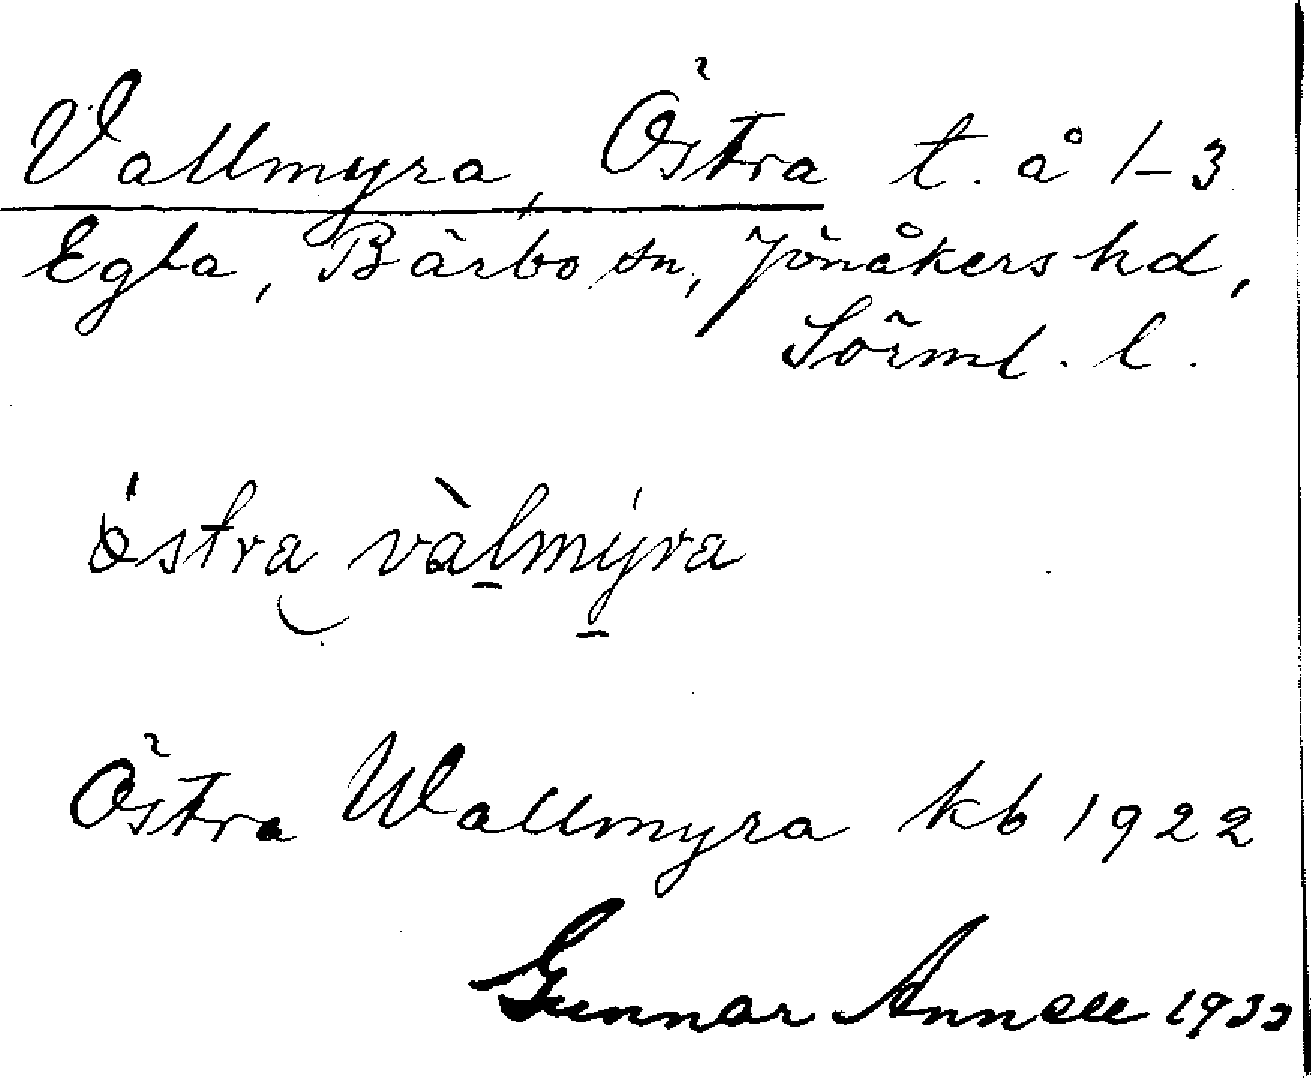 Vallmyra, Östra t. å 1-3
Egla, Bärbo sn, Jönåkers hd,
Sörml. l.
östra vàlmýra
Östra Wallmyra kb 1922
Gunnar Annell 1933